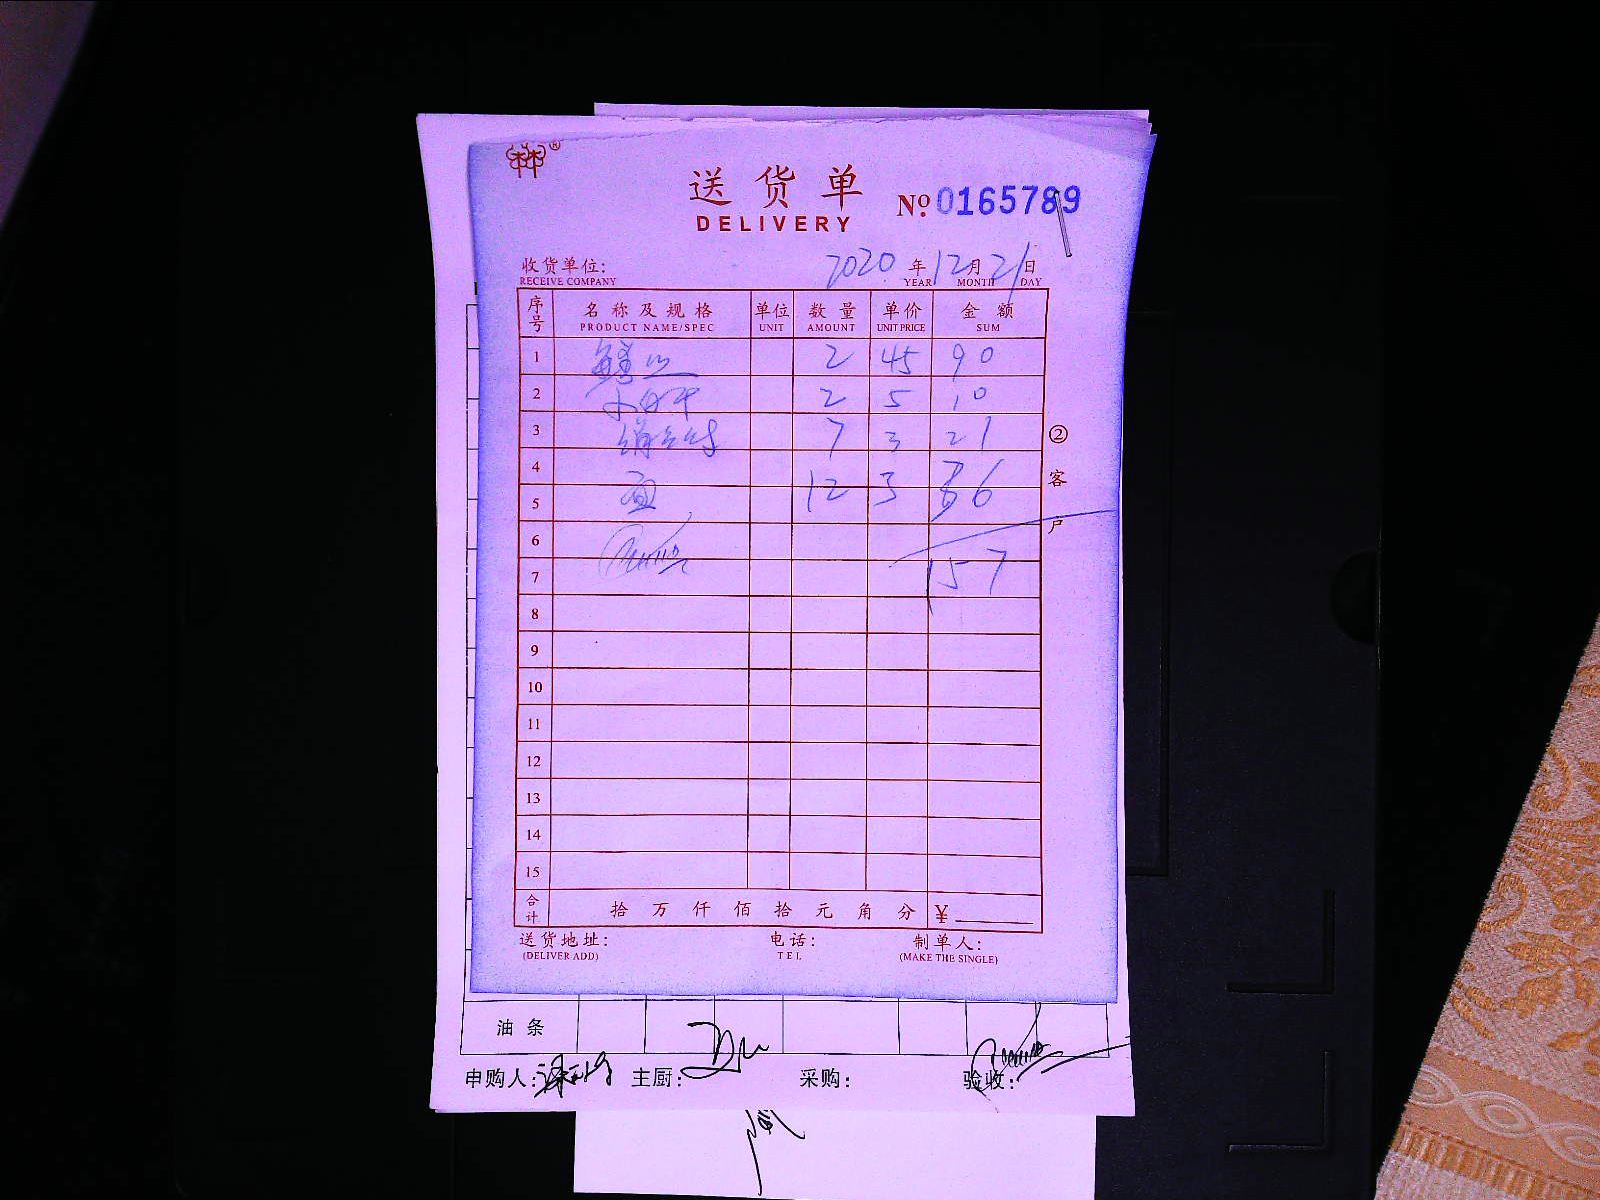 送货单
DELIVERY
№ 0165789
收货单位:
RECEIVE COMPANY
2020 年 12 月 21 日
YEAR MONTH DAY
序号 名称及规格 单位 数量 单价 金额
PRODUCT NAME/SPEC UNIT AMOUNT UNIT PRICE SUM
1 2 45 90
2 2 5 10
3 7 3 21
4
5 12 3 36
6
7 157
8
9
10
11
12
13
14
15
② 客户
合计 拾 万 仟 佰 拾 元 角 分 ¥
送货地址: 电话: 制单人:
(DELIVER ADD) TEL (MAKE THE SINGLE)
油条
申购人: 主厨: 采购: 验收: